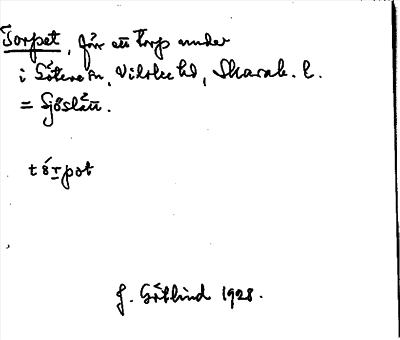 Torpet, för ett torp under
i Sätene sn, Vilske hd, Skarab. l.
= Sjöslätt.
tɷ́rpət
J. Götlind 1928.